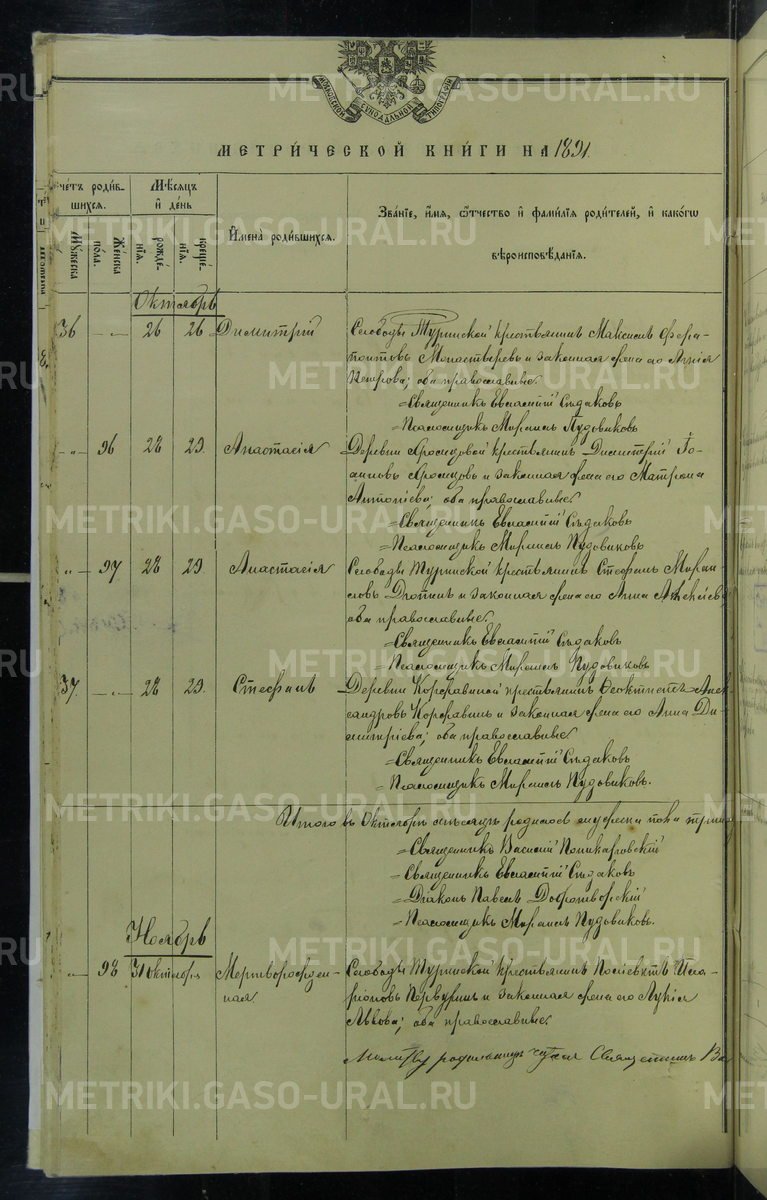 МОСКОВСКОЙ СУНОДАЛЬНОЙ ТИПОГРАФІИ
МЕТРИ́ЧЕСКОЙ КНИ́ГИ НА 1891.
Сче́тъ роди́в-
шихся.
Мѣ́сяцъ
и҆ де́нь
Мꙋ́жеска
Же́нска
по́ла.
рожде́-
нїя.
креще́-
нїя.
И҆мена̀ роди́вшихся.
Зва́нїе, и҆́мя, ѻ҆́тчество и҆ фами́лїя роди́телей, и҆ како́гѡ
вѣроисповѣ́данїя.
Октябрь
36 — „ — 26 26 Димитрій
Слободы Туринской крестьянинъ Максимъ Фера-
понтовъ Монастыревъ и законная жена его
Петрова; оба православные.
=Священникъ Евглампій Сѣдаковъ
=Псаломщикъ Миронъ Пудовиковъ
— „ — 96 28 29. Анастасія
Деревни крестьянинъ Димитрій Іо-
анновъ и законная жена его Матрона
Антоніева; оба православные.
=Священникъ Евглампій Сѣдаковъ
=Псаломщикъ Миронъ Пудовиковъ
„ — 97 28 29. Анастасія
Слободы Туринской крестьянинъ Стефанъ Миро
новъ и законная жена его Анна Алексіева
оба православные.
=Священникъ Евглампій Сѣдаковъ
=Псаломщикъ Миронъ Пудовиковъ
37. — „ — 28 29. Стефанъ
Деревни Коржавиной крестьянинъ Феоктистъ Алек-
сандровъ Коржавинъ и законная жена его Анна Ди-
митріева; оба православные
=Священникъ Евглампій Сѣдаковъ
=Псаломщикъ Миронъ Пудовиковъ.
Итого въ Октябрѣ мѣсяцѣ родилось мужеска пола
=Священникъ Василій Поликарповскій
=Священникъ Евглампій Сѣдаковъ
=Діаконъ Павелъ Добротворскій
=Псаломщикъ Миронъ Пудовиковъ.
Ноябрь
„ — 98 31 Октября Мертворожден-
ная.
Слободы Туринской крестьянинъ Поліевктъ Ила-
ріоновъ Первушинъ и законная жена его Лукія
Львова; оба православные.
Молитву родильницѣ читалъ Священникъ Ва
METRIKI.GASO-URAL.RU